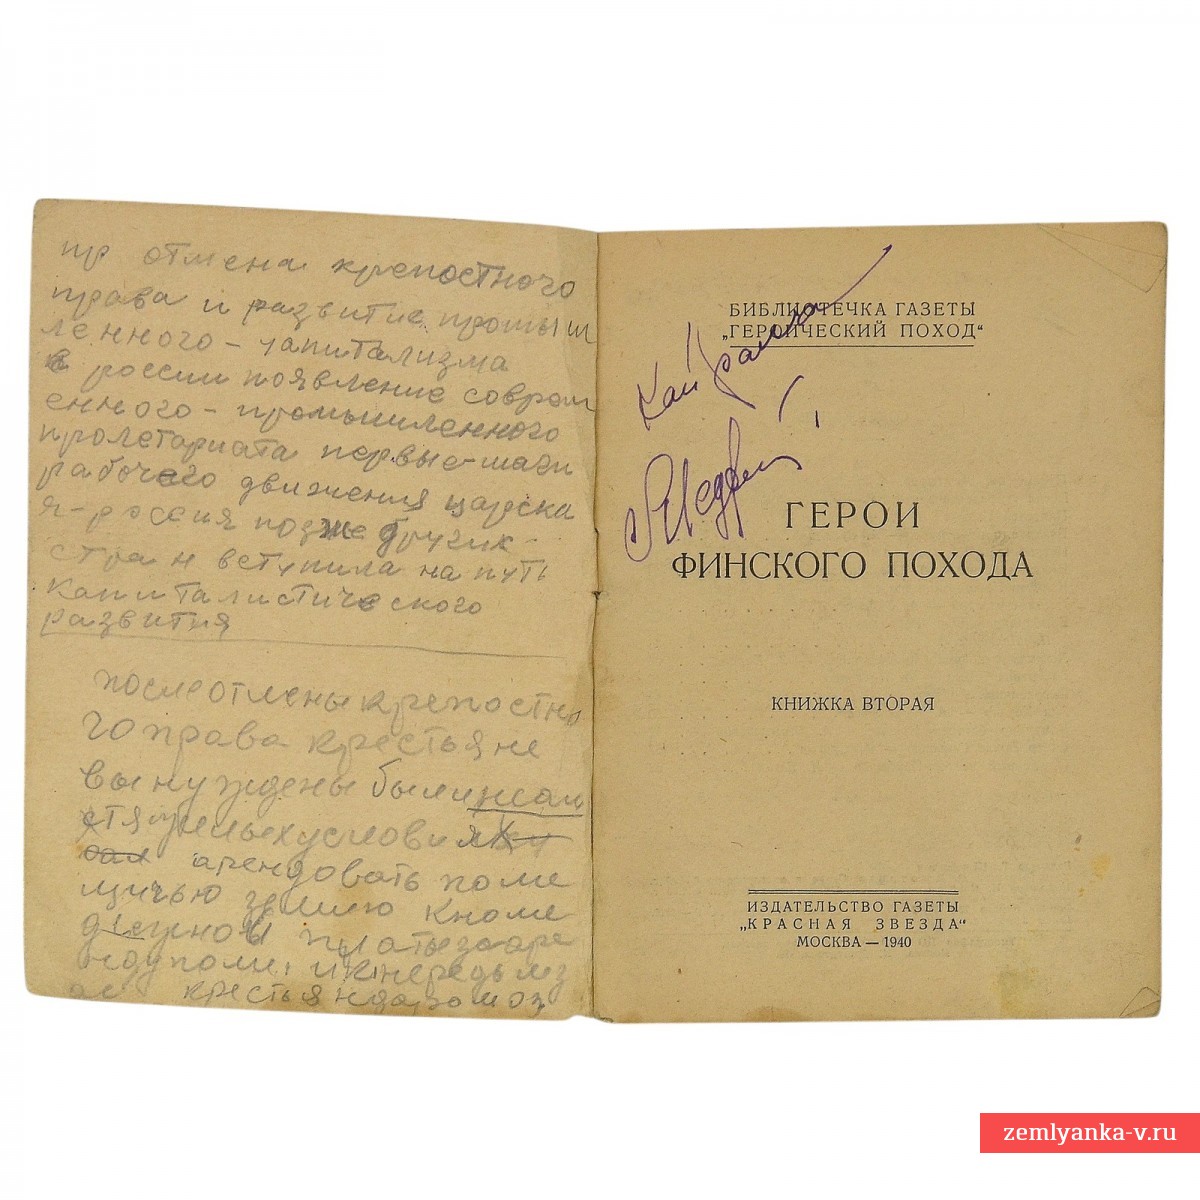 пр отмена крепостного
права и развитие промыш
ленного - капитализма
в россии появление соврем
енного - промышленного
пролетариата первые - шаги
рабочего движения царска
я - россия позже других -
стран вступила на путь
капиталистического
развития
после отмены крепостно
го права крестьяне
вынуждены были на сам
ых условиях
арендовать поме
щичью землю кноме
платы за аре
нду поме
крестьян даром
БИБЛИОТЕЧКА ГАЗЕТЫ
„ГЕРОИЧЕСКИЙ ПОХОД“
ГЕРОИ
ФИНСКОГО ПОХОДА
КНИЖКА ВТОРАЯ
ИЗДАТЕЛЬСТВО ГАЗЕТЫ
„КРАСНАЯ ЗВЕЗДА“
МОСКВА — 1940
zemlyanka-v.ru